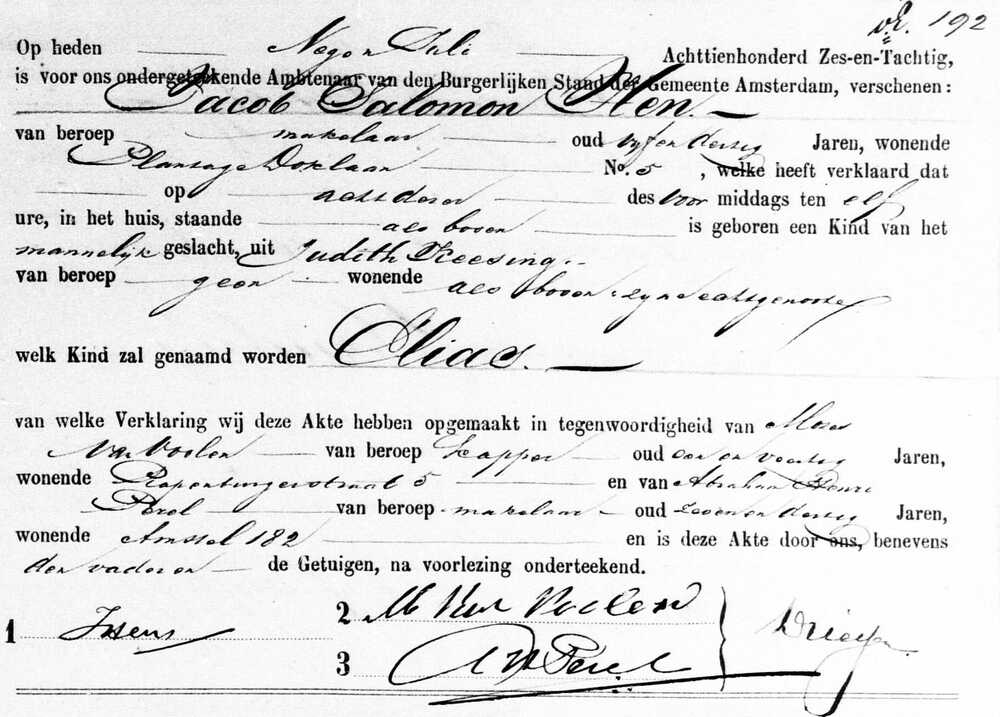 192
Op heden Negen Juli Achttienhonderd Zes-en-Tachtig,
is voor ons ondergeteekende Ambtenaar van den Burgerlijken Stand der Gemeente Amsterdam, verschenen:
Jacob Salomon
van beroep makelaar oud vyfendertig Jaren, wonende
Plantage Doklaan No. 5, welke heeft verklaard dat
op achtdezer des voor middags ten elf
ure, in het huis, staande als boven is geboren een Kind van het
mannelijk geslacht, uit Judith Keesing.
van beroep geen wonende als boven, zyne echtgenoote
welk Kind zal genaamd worden Elias.
van welke Verklaring wij deze Akte hebben opgemaakt in tegenwoordigheid van Mozes
van beroep oud een en veertig Jaren,
wonende Rapenburgerstraat 5 en van Abraham Henri
Perel van beroep makelaar oud zeven en dertig Jaren,
wonende Amstel 182 en is deze Akte door ons, benevens
den vader en de Getuigen, na voorlezing onderteekend.
1 2 M Van
3 Perel